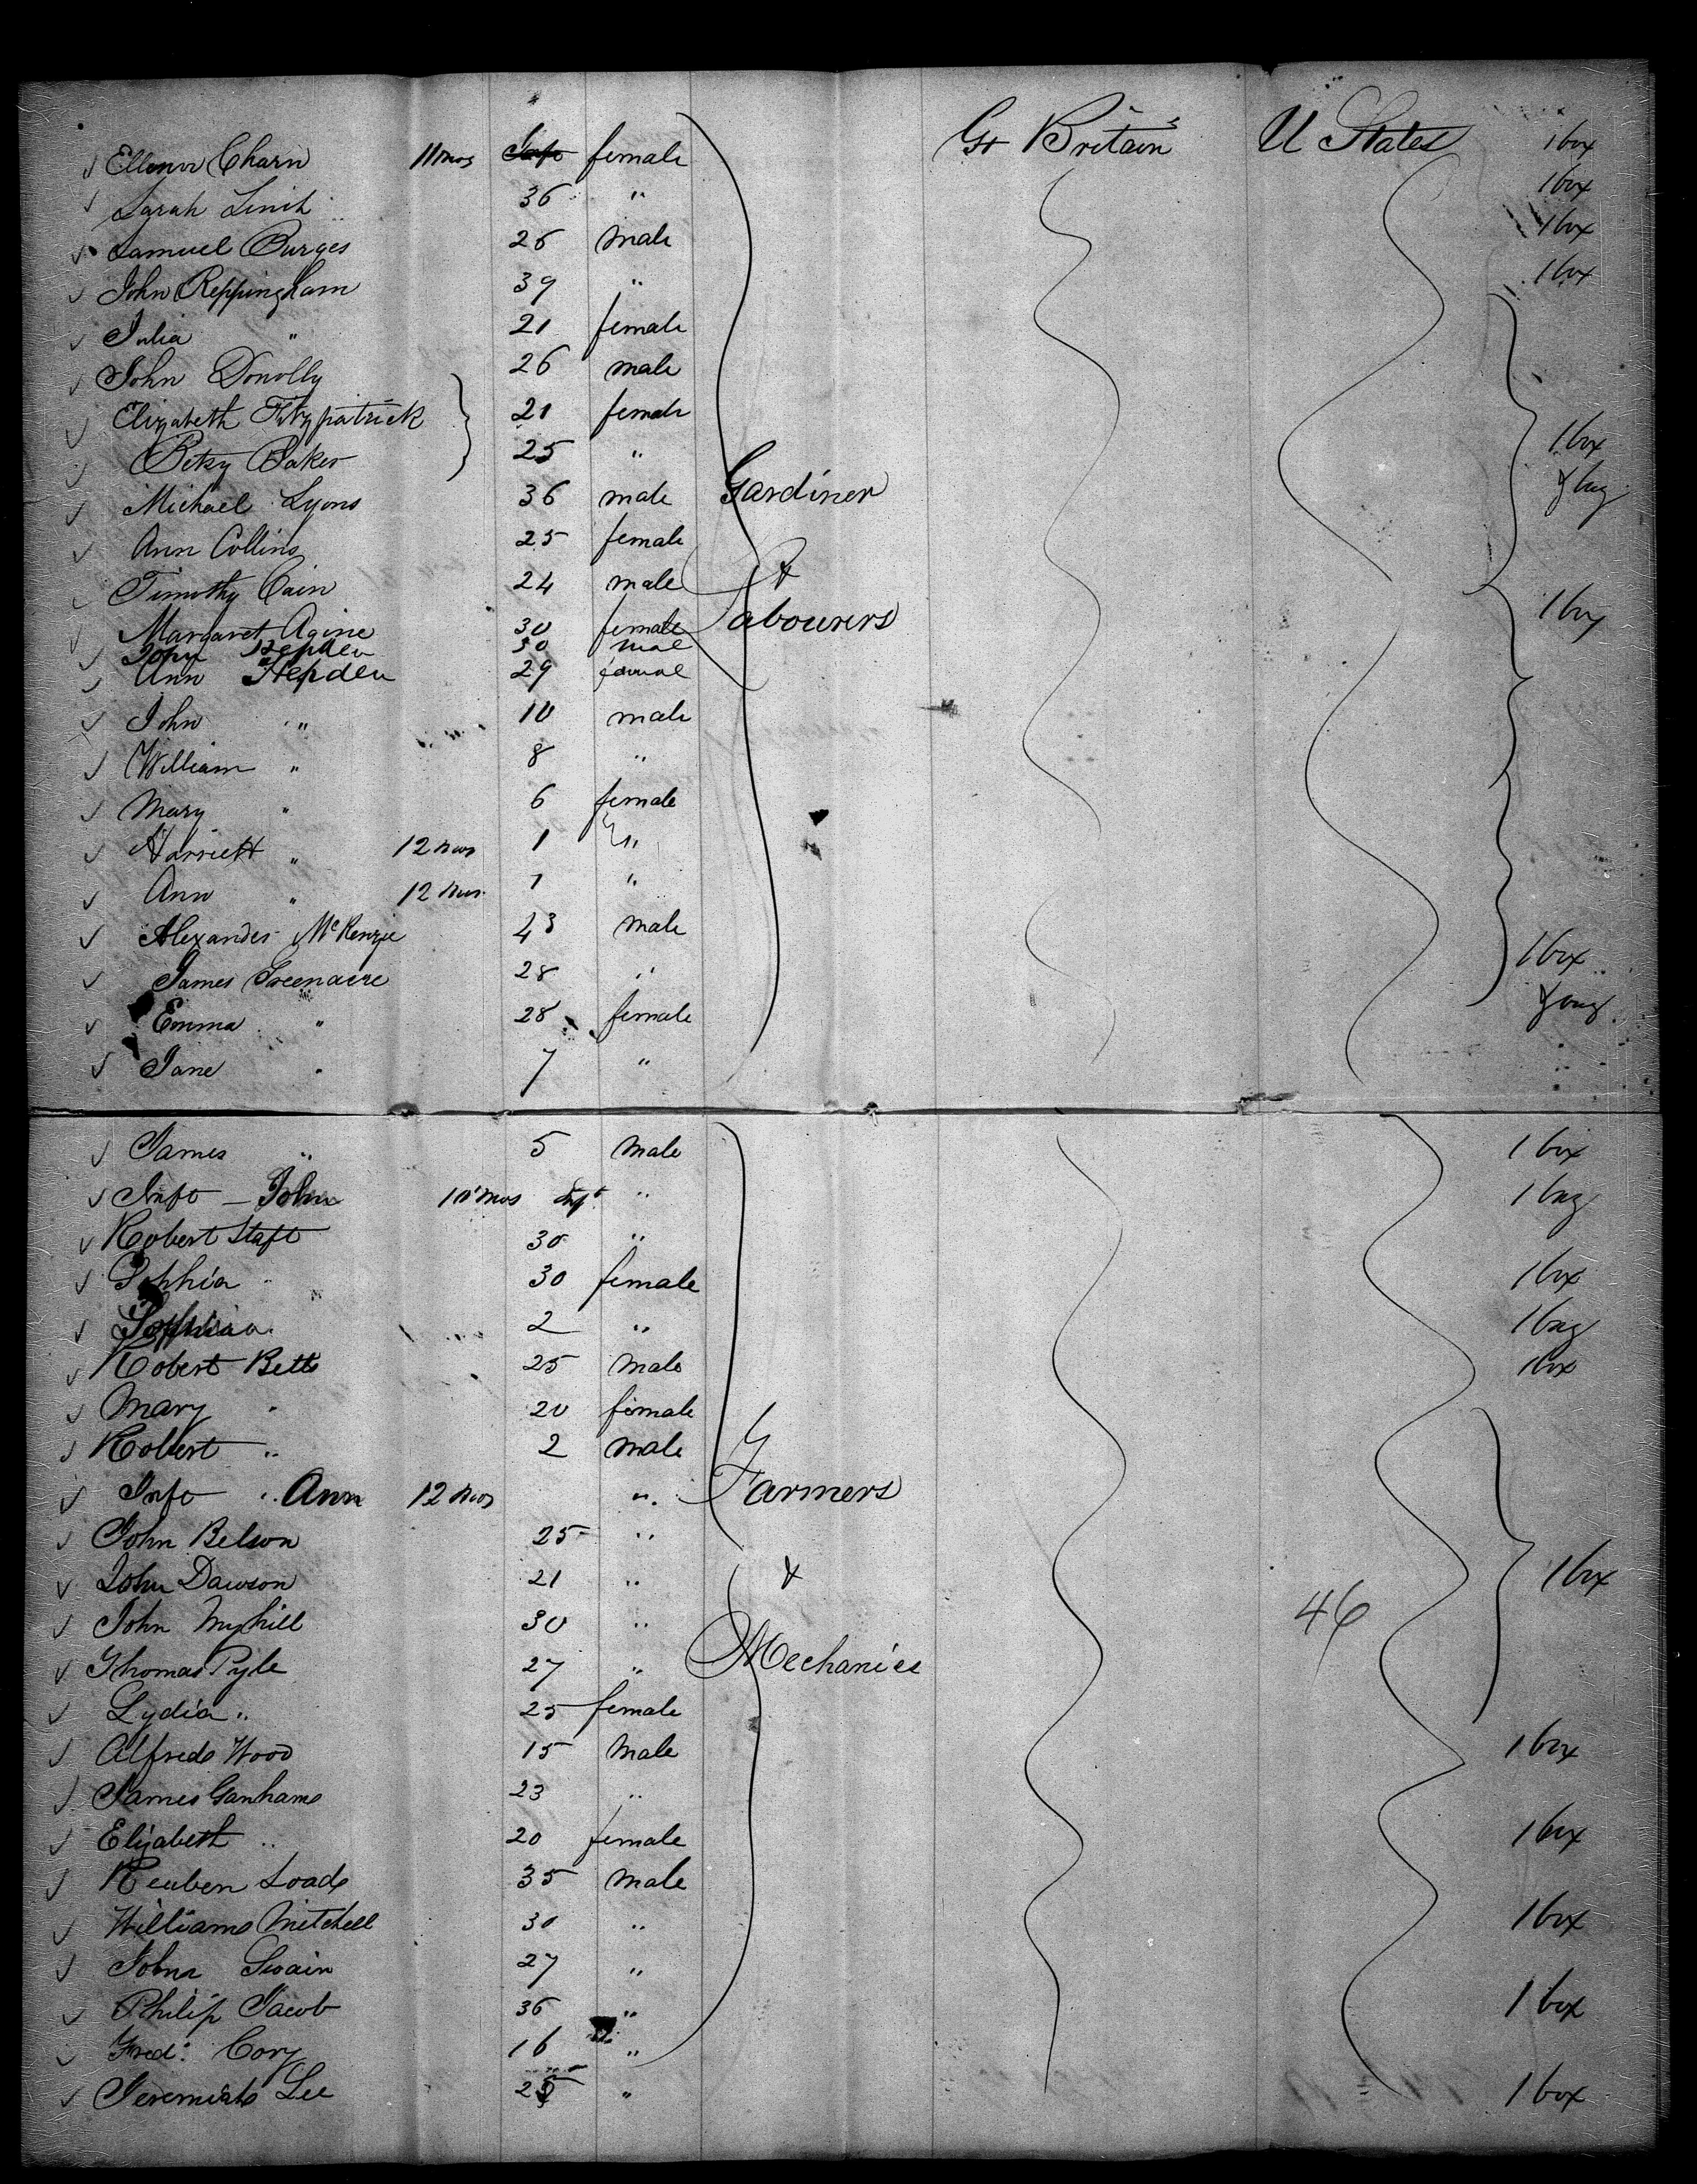 Ellenor Charn 11 mos Inft female Gt Britain U States 1 box
Sarah Linch 36 " 1 box
Samuel Burges 26 male 1 box
John Reppingham 39 " 1 box
Julia " 21 female
John Donolly 26 male
Elizabeth Fitzpatrick 21 female
Betsy Baker 25 " 1 box
Michael Lyons 36 male Gardiner & bag
Ann Collins 25 female
Timothy Cain 24 male &
Margaret Agine 30 female Labourers 1 box
John Hepden 30 male
Ann Hepden 29 femal
John " 10 male
William " 8 "
Mary " 6 female
Harriett " 12 mos 1 "
Ann " 12 mos 1 "
Alexander McKenzie 43 male
James Greenacre 28 " 1 box
Emma " 28 female & bag
Jane " 7 "
James " 5 male 1 box
Inft - John 10 mos Inft " 1 bag
Robert Staff 30 "
Sophia " 30 female 1 box
Sophia 2 " 1 bag
Robert Betts 25 male 1 box
Mary " 20 female
Robert " 2 male
Inft " Ann 12 mos " Farmers
John Belson 25 "
John Dawson 21 " & 1 box
John Myhill 30 " 46
Thomas Pyle 27 " Mechanics
Lydia " 25 female
Alfred Wood 15 male 1 box
James Ganham 23 "
Elizabeth " 20 female 1 box
Reuben Loads 35 male
William Mitchell 30 " 1 box
John Swain 27 "
Philip Jacob 36 " 1 box
Fred: Cory 16 "
Jeremiah Lee 25 " 1 box